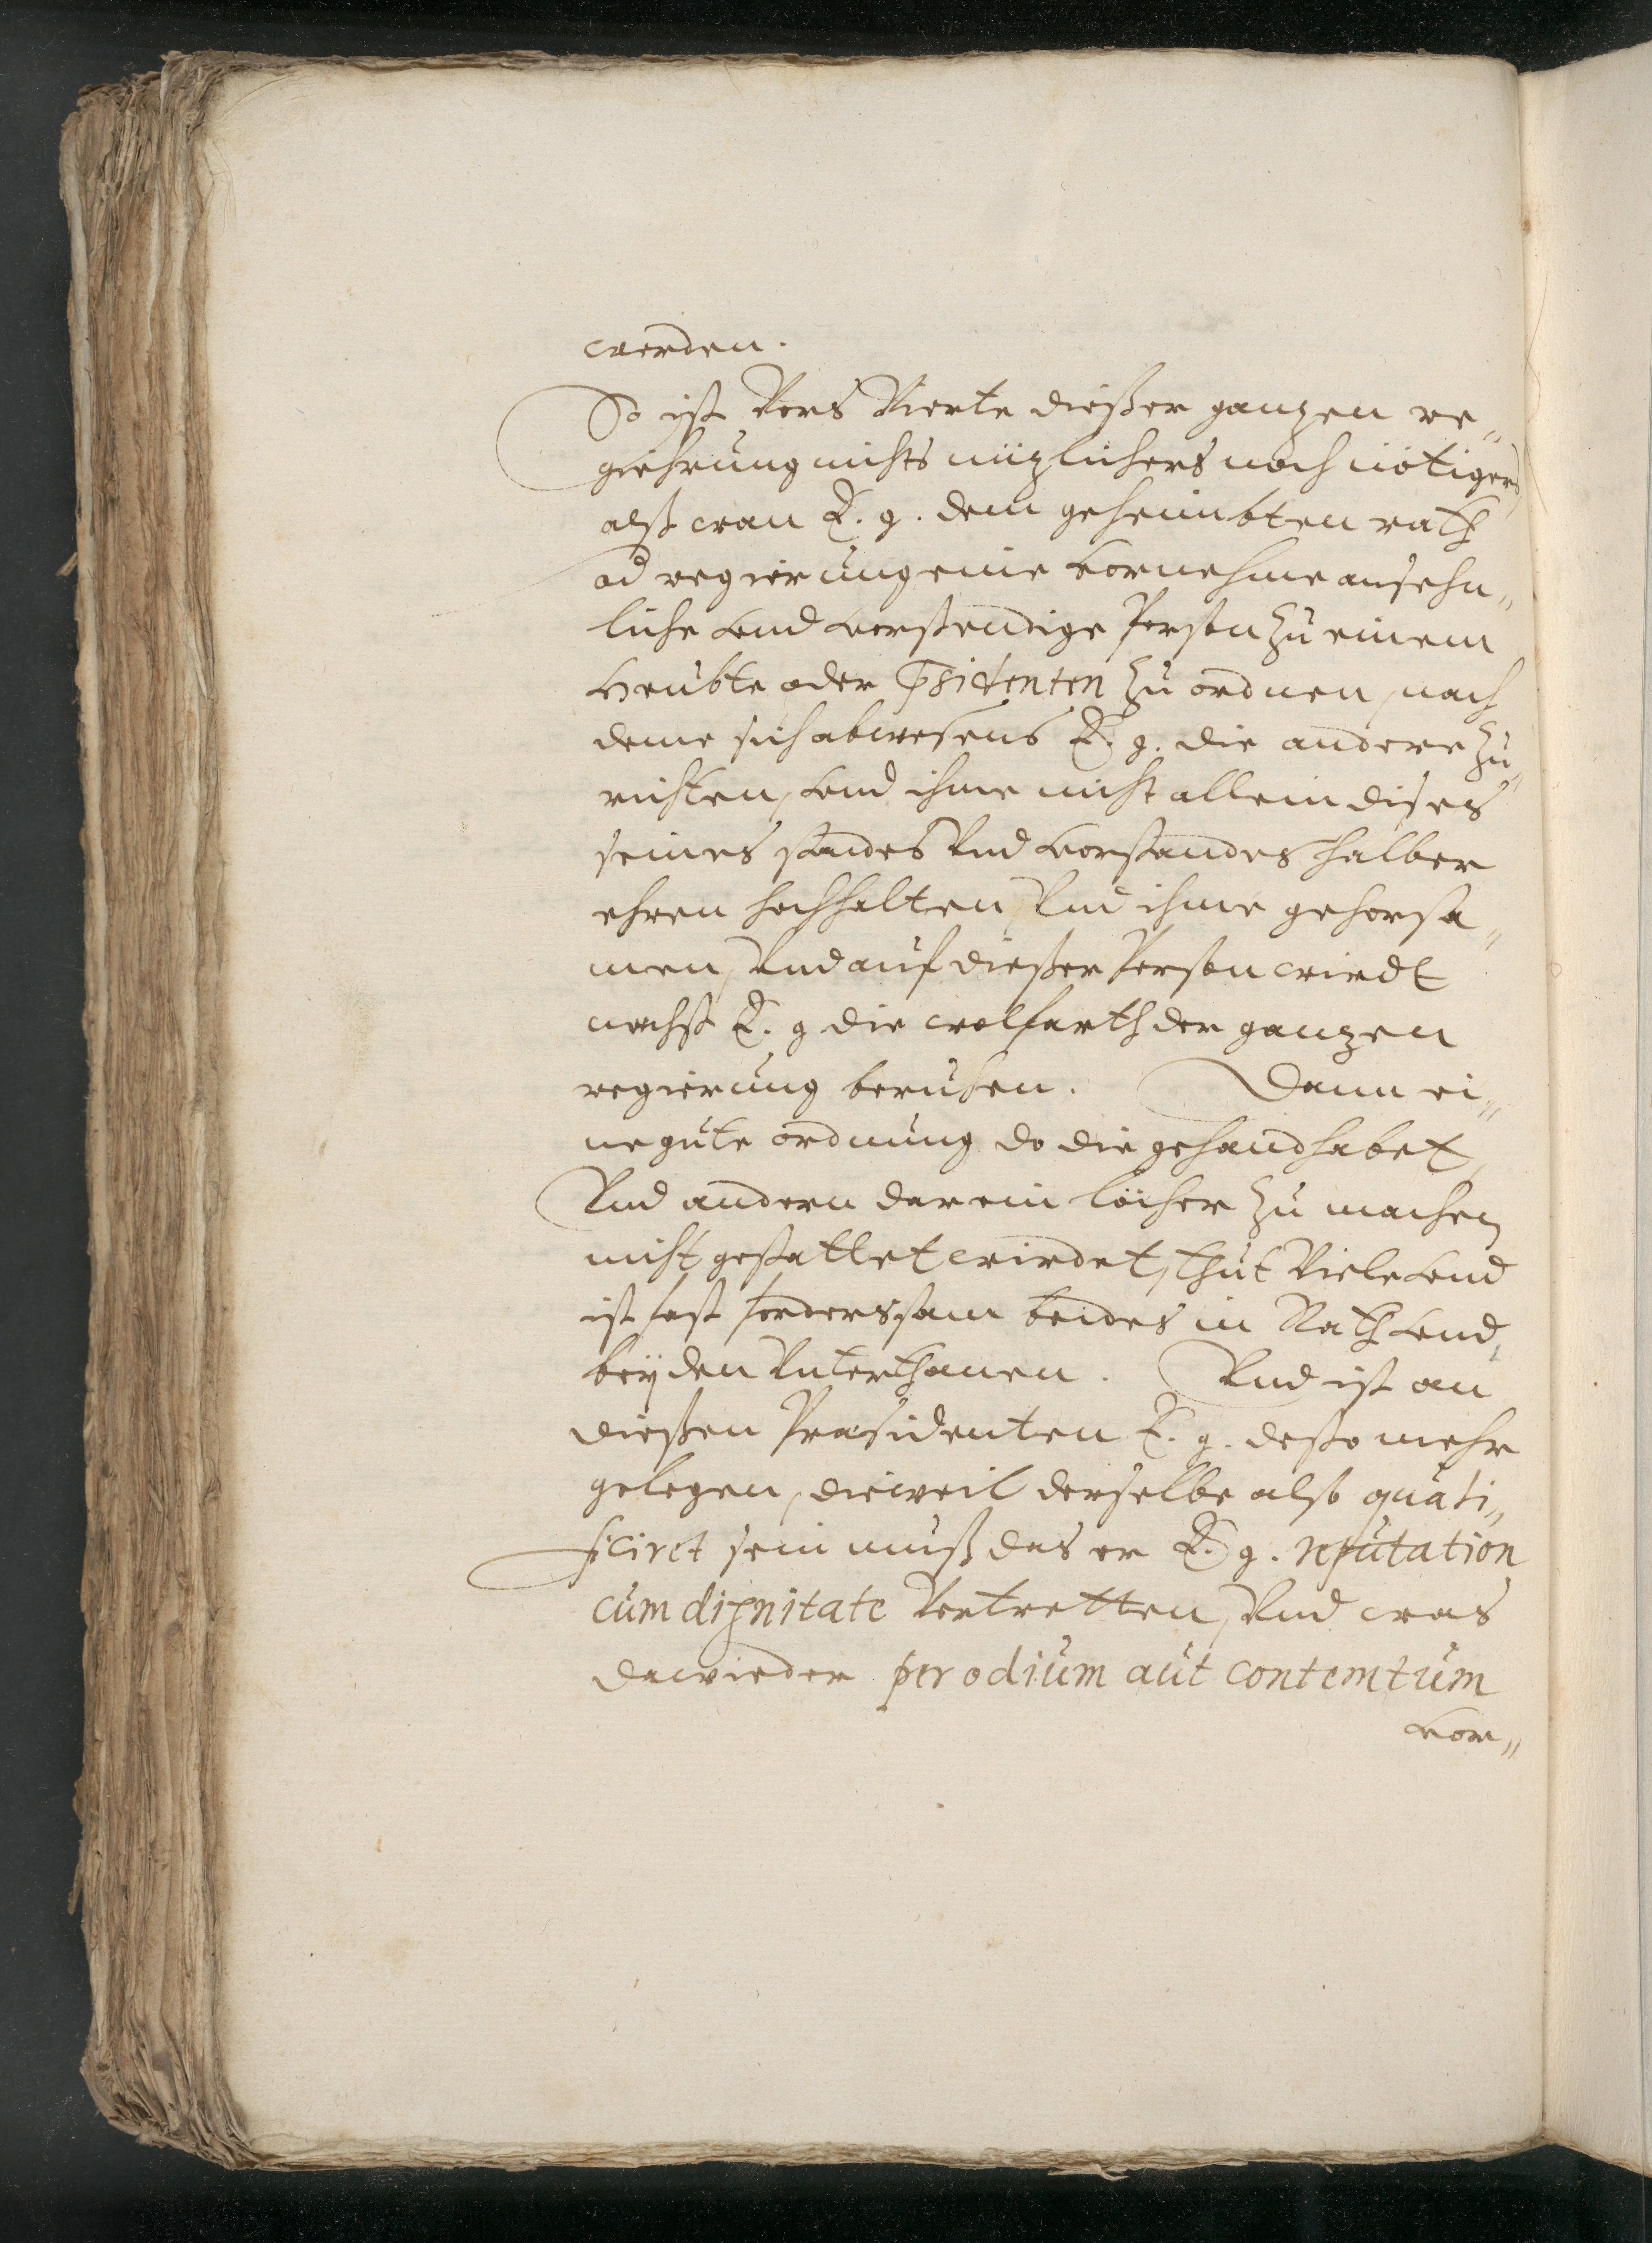 werden.
So ist Vors Vierte dießer ganzen re„
giehrung nichts nüzlichers noch nötigers
alß wan E. g. dem geheimbten rath
ad regierung eine vornehme ansehn„
liche vnd verstendige Person zu einem
Heubte oder Psidenten zu ordnen, nach
deme sich abwesens E. g. die andere zu
richten, vnd ihme nicht allein dises
seines standes Vnd verstandes halber
ehren hochhalten, Vnd ihme gehorsa„
men, Vnd auf dießer Person wirdt
nechst E. g die wolfarth der ganzen
regierung beruhen. Dann ei„
ne gute ordnung do die gehandhabet,
Vnd andern darein löcher zu machen
nicht gestattet wirdet, thut Viele vnd
ist fast fordersam beides in Rath vnd,
bey den Vnterthanen. Vnd ist an
dießen Præsidenten E. g. desto mehr
gelegen, dieweil derselbe also quali„
ficiret sein muß das er E. g. reputation
cum dignitate Vertretten, Vnd was
dawieder per odium aut contemtum
vor„